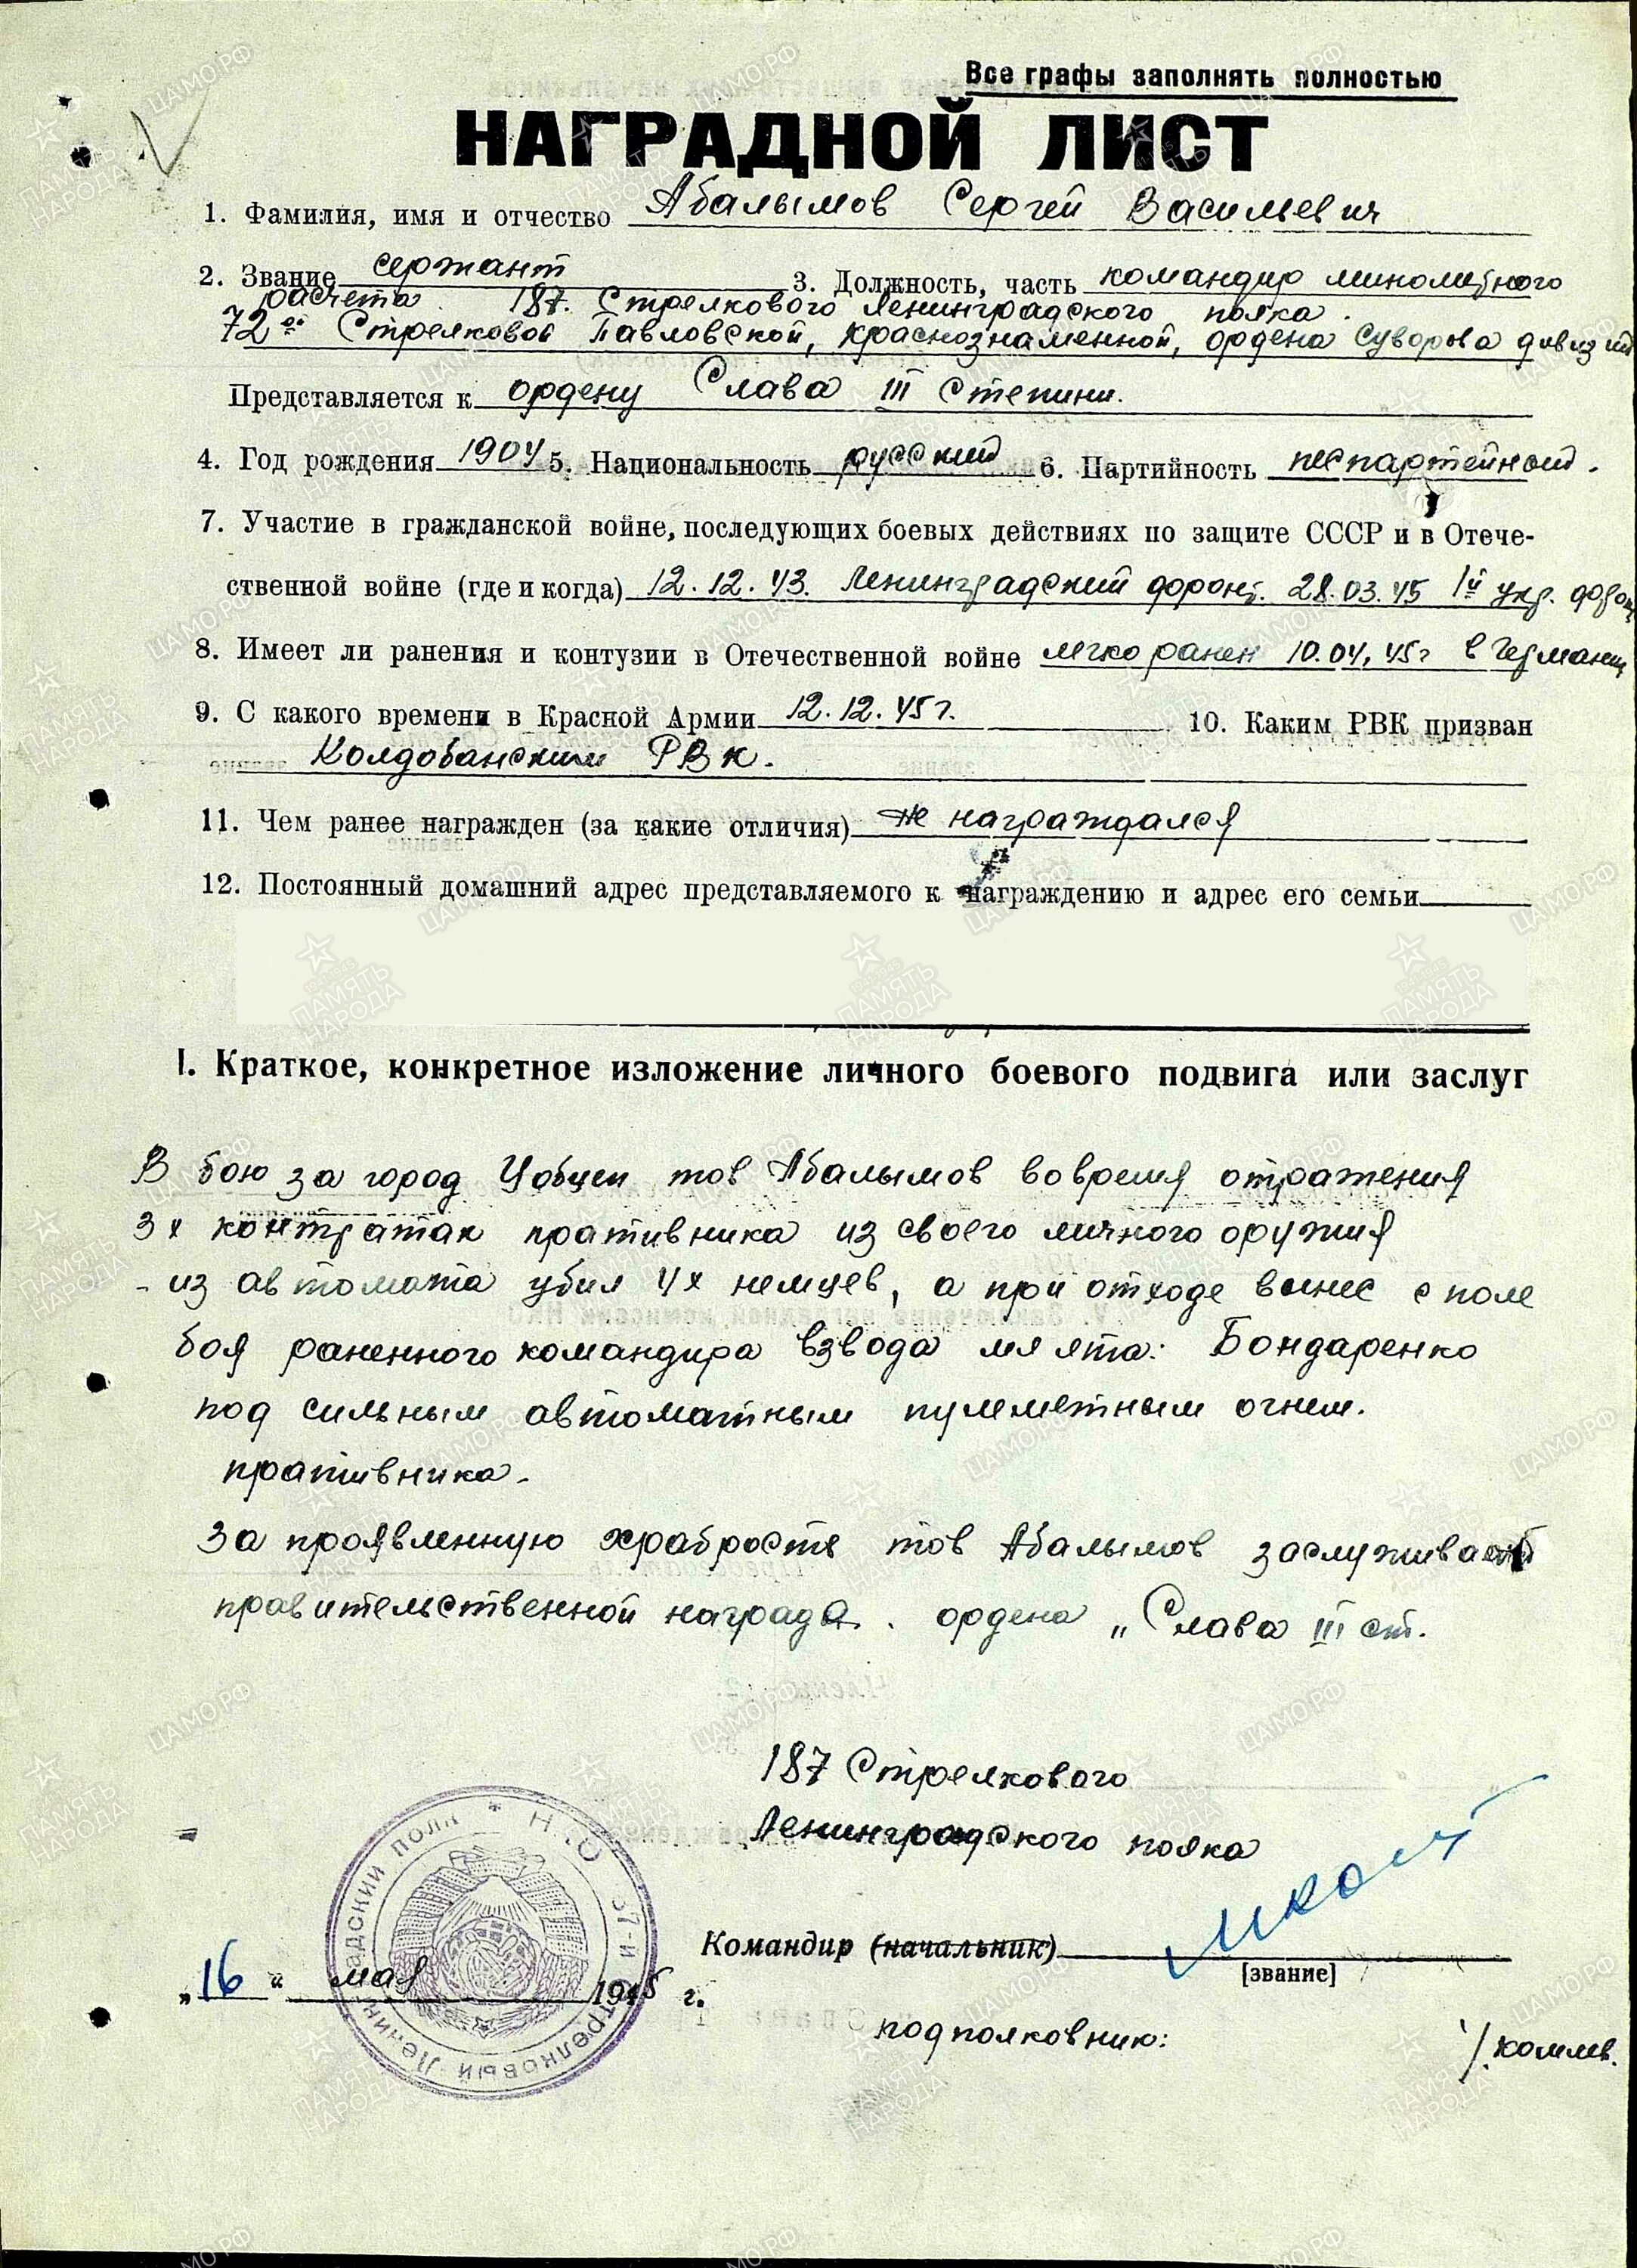 Все графы заполнять полностью
НАГРАДНОЙ ЛИСТ
1. Фамилия, имя и отчество Абалымов Сергей Васильевич
2. Звание сержант 3. Должность, часть командир минометного
расчета 187. Стрелкового Ленинградского полка.
72ой Стрелковой Павловской, Краснознаменной, ордена Суворова дивизии
Представляется к ордену Слава III степини.
4. Год рождения 1904 5. Национальность русский 6. Партийность беспартейный.
7. Участие в гражданской войне, последующих боевых действиях по защите СССР и в Отече-
ственной войне (где и когда) 12.12.43. Ленинградский фронт. 28.03.45 1й укр. фронт
8. Имеет ли ранения и контузии в Отечественной войне легко ранен 10.04.45г в Германии
9. С какого времени в Красной Армии 12.12.45г. 10. Каким РВК призван
Колдобанским РВК.
11. Чем ранее награжден (за какие отличия) не награждался
12. Постоянный домашний адрес представляемого к награждению и адрес его семьи
I. Краткое, конкретное изложение личного боевого подвига или заслуг
В бою за город тов Абалымов во время отражения
3х контратак пративника из своего личного оружия
- из автомата убил 4х немцев, а при отходе вынес с поле
боя раненного командира взвода Бондаренко
под сильным автоматным пулеметным огнем.
пративника.
За проявленную храбрость тов Абалымов заслуживает
правительственной награда. ордена „Слава III ст.
187 Стрелкового
Ленинградского полка
Командир (начальник)
[звание]
„16“ мая 1945 г.
подполковник:
Ленинградский полк * НКО 187-й Стрелковый
ЦАМО.РФ
ПАМЯТЬ НАРОДА